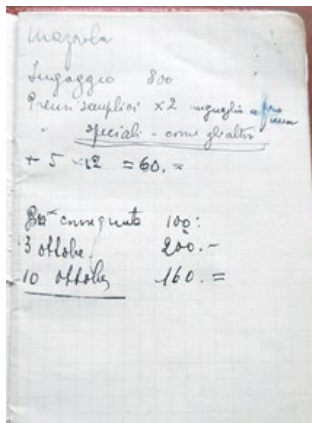 Mazzola
Ingaggio 800
Premi semplici x2
" speciali - come gli altri
+ 5 x12 = 60. =
Già consegnato 100:
3 ottobre 200. -
10 ottobre 160. =